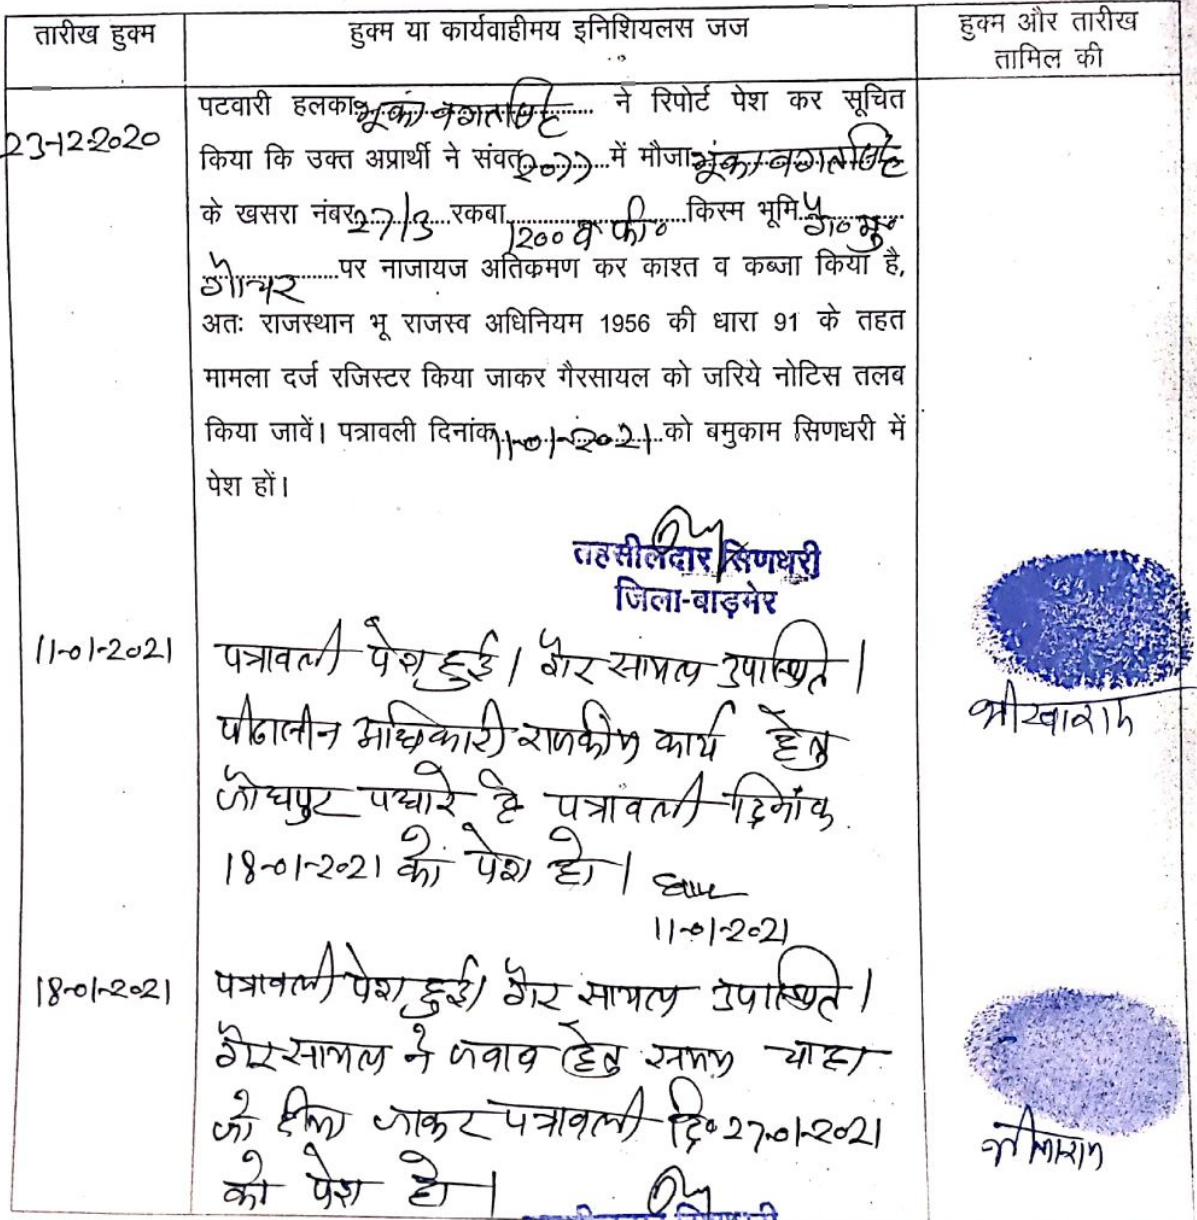 तारीख हुक्म
हुक्म या कार्यवाहीमय इनिशियलस जज
हुक्म और तारीख
तामिल की
23-12-2020
पटवारी हलका भूंका भगतसिंह ने रिपोर्ट पेश कर सूचित
किया कि उक्त अप्रार्थी ने संवत् 2077 में मौजा भूंका भगतसिंह
के खसरा नंबर 27/3 रकबा 1200 व फी० किस्म भूमि गै० मु०
गोचर पर नाजायज अतिकमण कर काश्त व कब्जा किया है,
अतः राजस्थान भू राजस्व अधिनियम 1956 की धारा 91 के तहत
मामला दर्ज रजिस्टर किया जाकर गैरसायल को जरिये नोटिस तलब
किया जावें। पत्रावली दिनांक 11-01-2021 को बमुकाम सिणधरी में
पेश हों।
तहसीलदार सिणधरी
जिला-बाड़मेर
11-01-2021
पत्रावली पेश हुई। गैर सायल उपस्थित।
पीठासीन अधिकारी राजकीय कार्य हेतु
जोधपुर पधारे है पत्रावली दिनांक
18-01-2021 को पेश हो।
11-01-2021
भीखाराम
18-01-2021
पत्रावली पेश हुई। गैर सायल उपस्थित।
गैर सायल ने जवाब हेतु समय चाहा
जो दीया जाकर पत्रावली दि० 27-01-2021
को पेश हो।
तहसीलदार सिणधरी